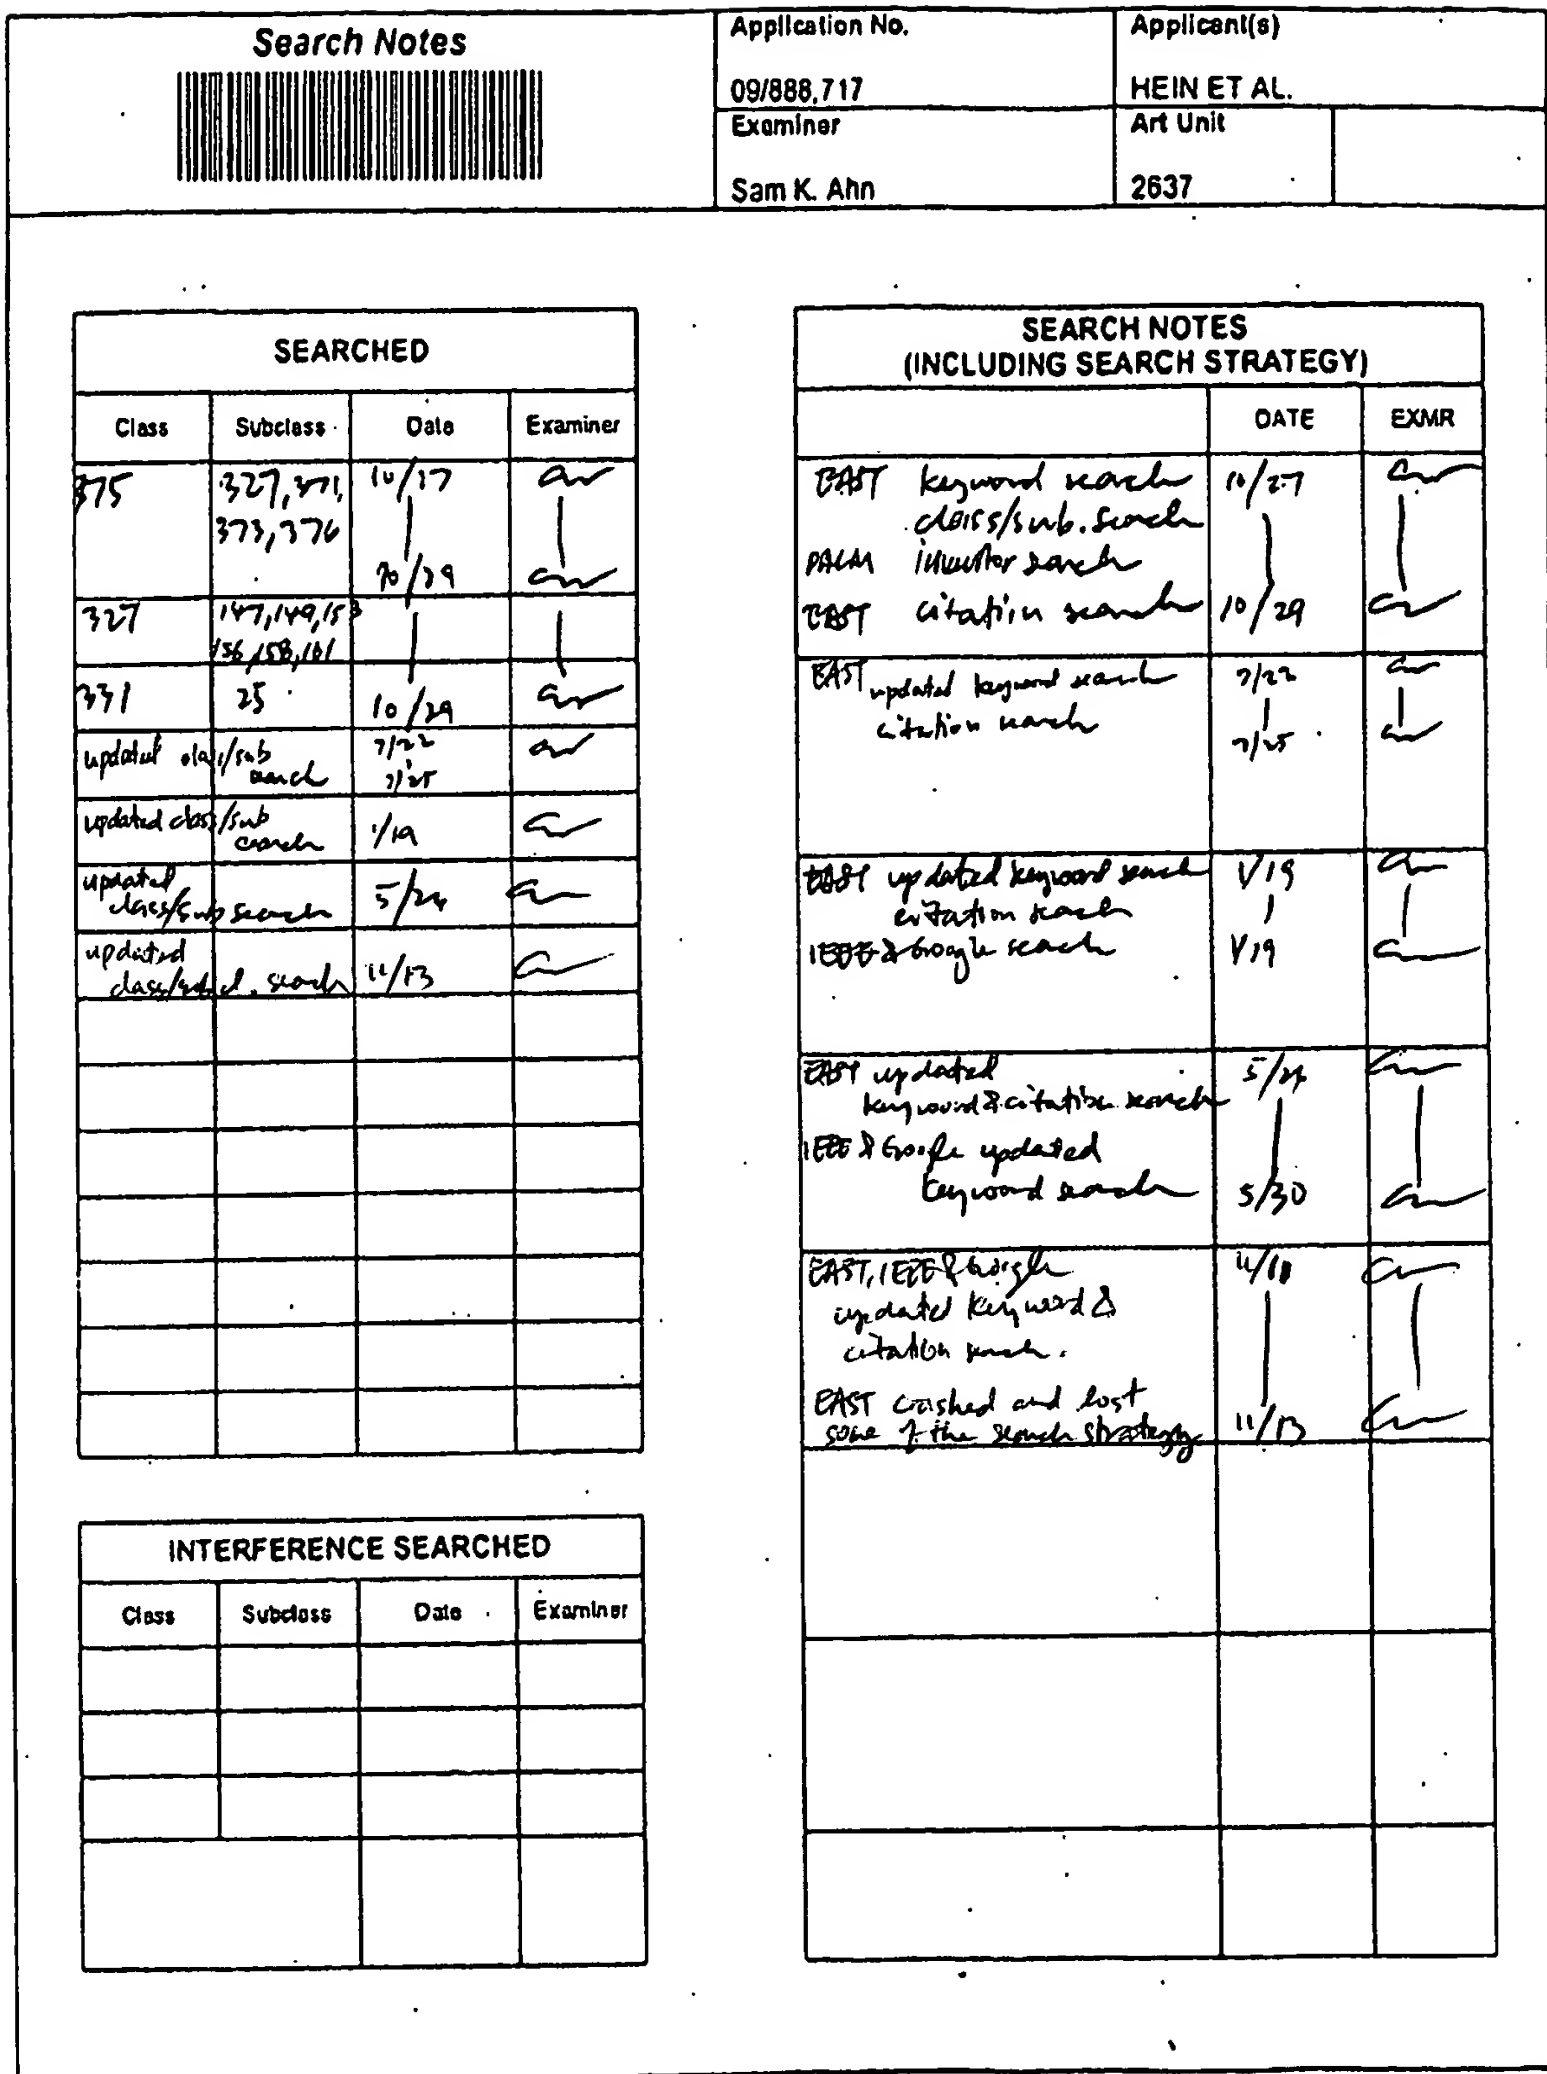 Search Notes
Application No.
09/888,717
Applicant(s)
HEIN ET AL.
Examiner
Sam K. Ahn
Art Unit
2637
SEARCHED
Class Subclass Date Examiner
375 327,371, 10/27
373,376
10/29
327 147,149,153
156,158,161
331 25 10/29
updated class/sub 7/22
search 7/25
updated class/sub
search 1/19
updated
class/sub search 5/24
updated
class/subcl. search 11/13
INTERFERENCE SEARCHED
Class Subclass Date Examiner
SEARCH NOTES
(INCLUDING SEARCH STRATEGY)
DATE EXMR
EAST keyword search 10/27
class/sub. search
PALM inventor search
EAST citation search 10/29
EAST updated keyword search 7/22
citation search 7/25
EAST updated keyword search 1/19
citation search
IEEE & Google search 1/19
EAST updated 5/24
keyword & citation search
IEEE & Google updated
keyword search 5/30
EAST, IEEE & Google 11/10
updated keyword &
citation search.
EAST crashed and lost
some of the search strategy 11/13